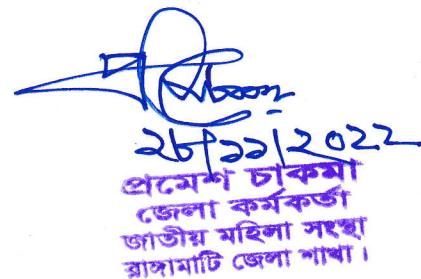 ২৮/১১/২০২২
প্রমেশ চাকমা
জেলা কর্মকর্তা
জাতীয় মহিলা সংস্থা
রাঙ্গামাটি জেলা শাখা।